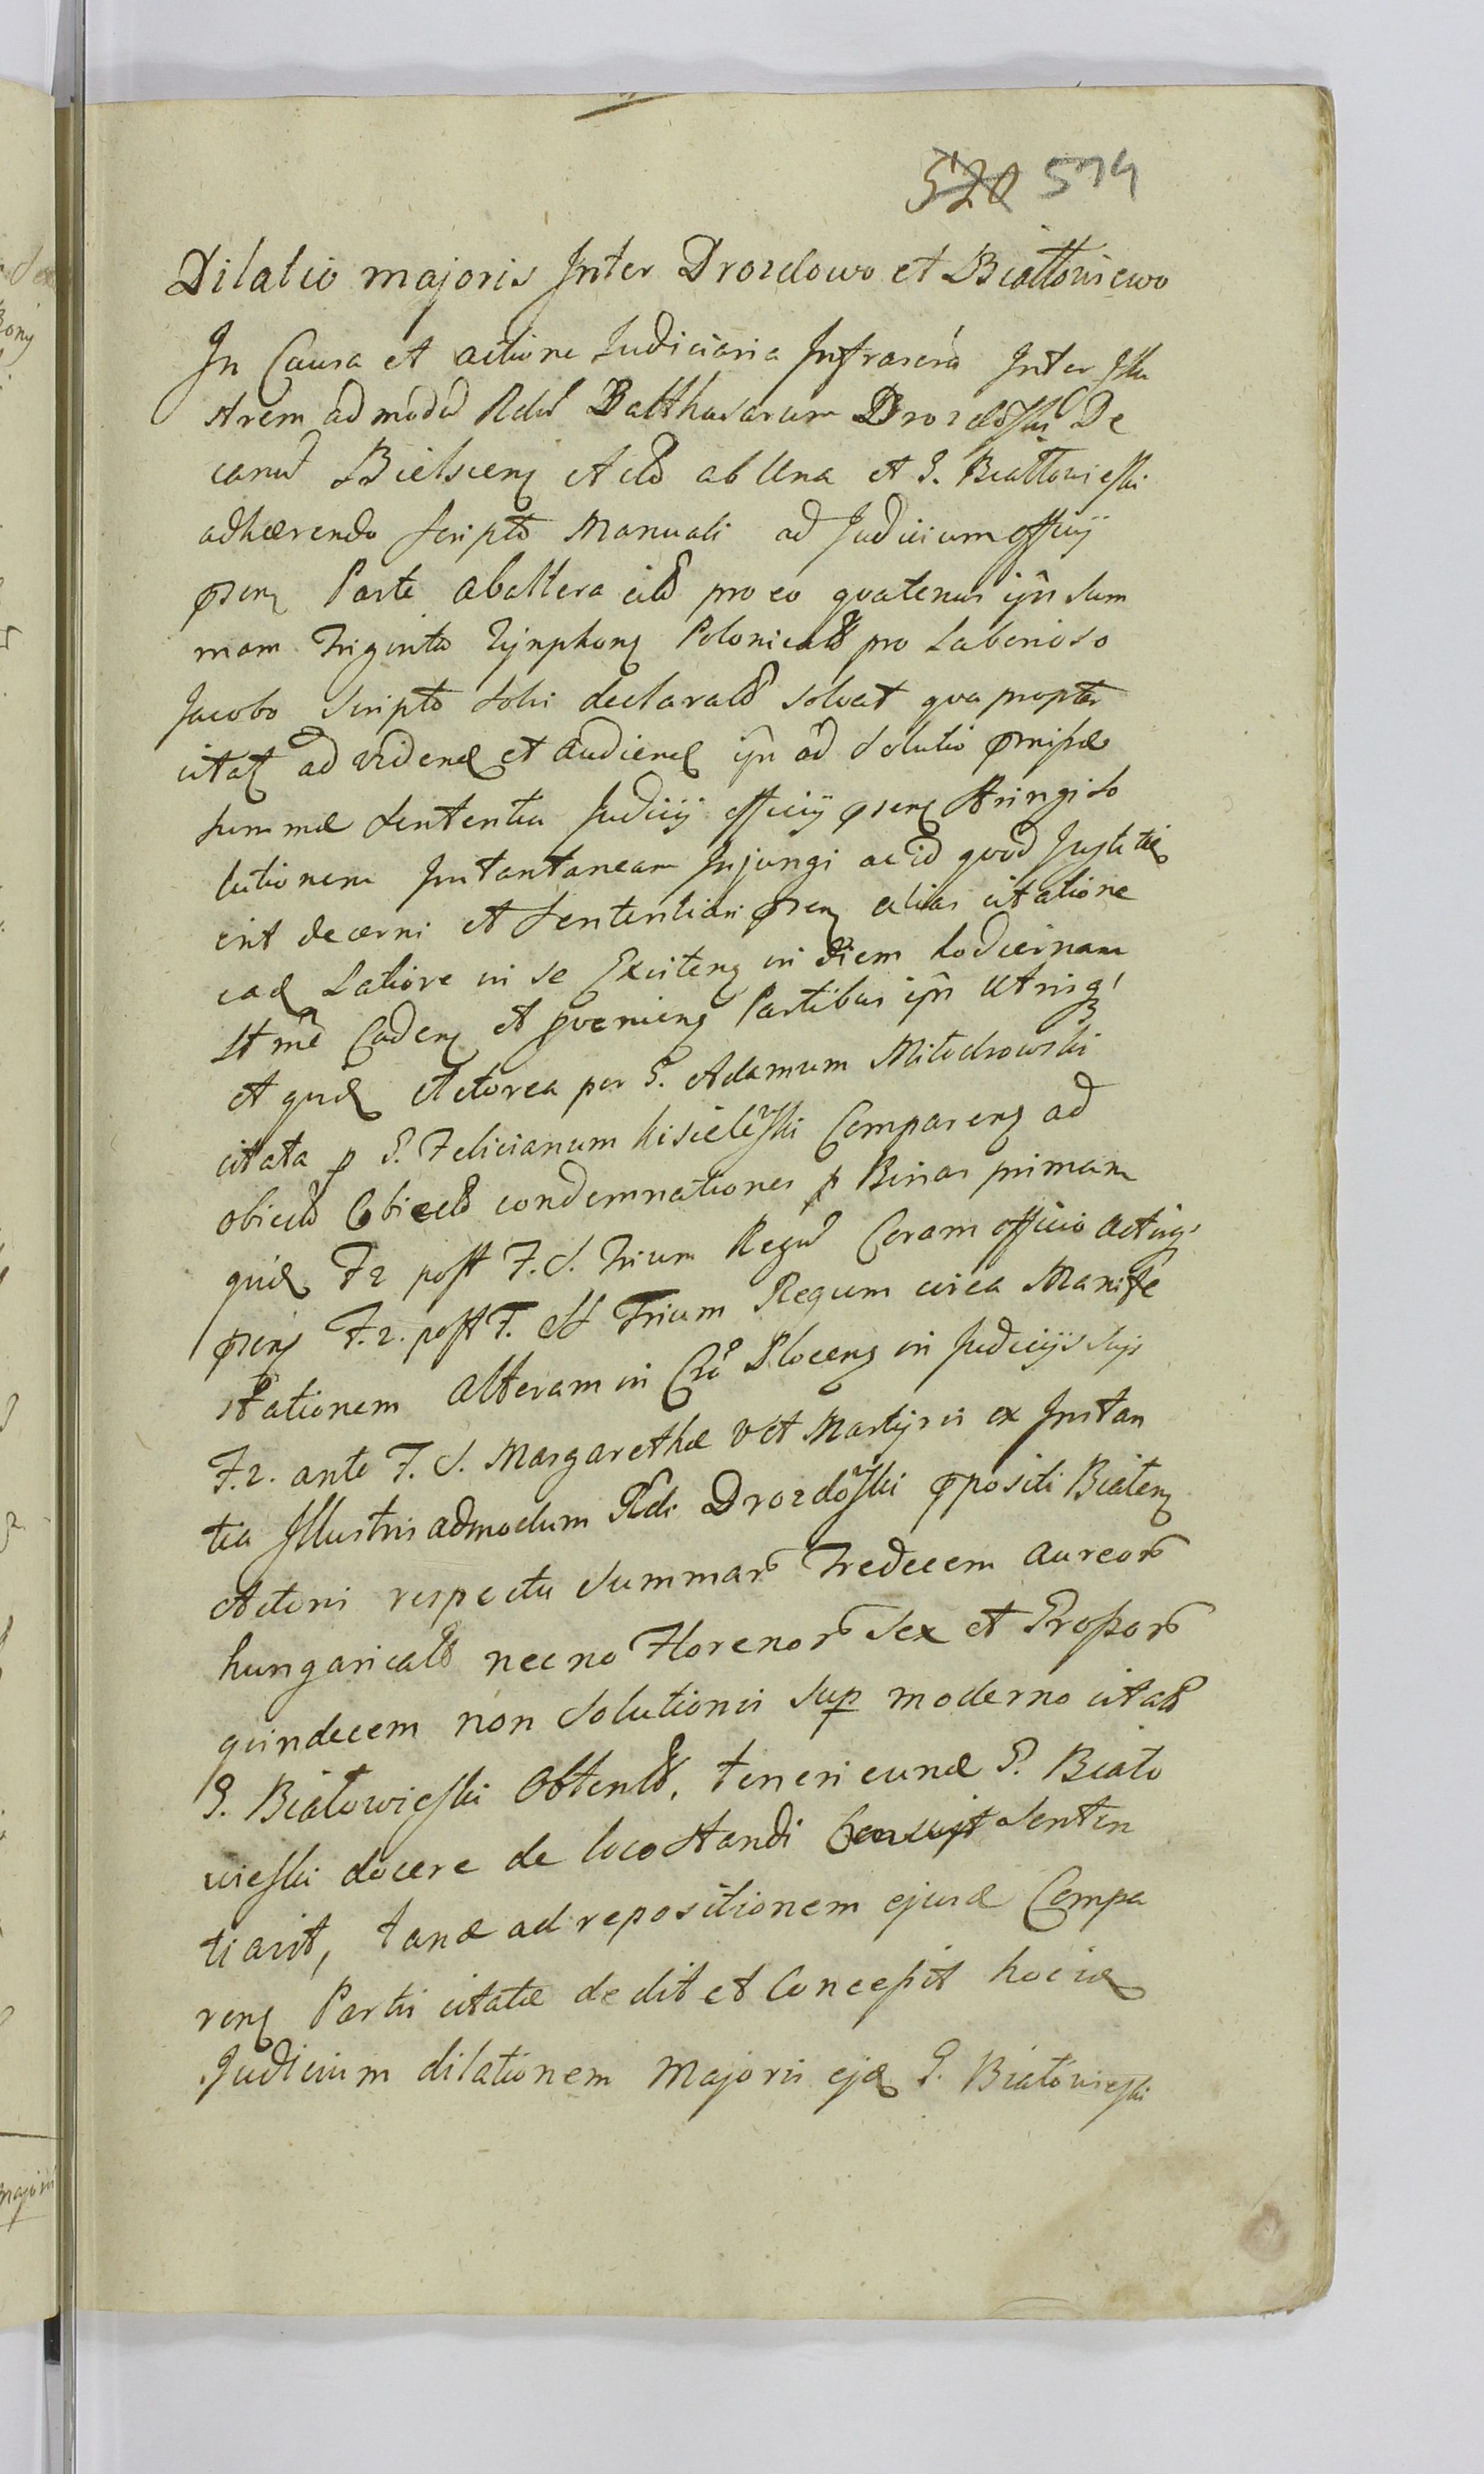 520 574
Dilatio majoris Inter Drozdowo et Białłowiewo
In Causa et actione Judiciaria Infrascrà Inter Illu
strem admodū Rdū Balthasarum Drozdoski De
canū Bielscens Actō ab Una et G. Białłowieski
adhærendo scripto Manuali ad Judicium officij
præns Parte ab altera citō pro eo quatenus ipn sum
mam Triginta Tynphons Polonicalō pro Laborioso
Jacobo scripto solvi declaratō solvat qva propter
citat ad videnđ et audienđ ipn ad solutio præmissæ
summæ sententia Judicij officij præns stringi so
lutionem Instantaneam Injungi ac id quod Justitiæ
erit decerni et sententiari præns alias citatione
eađ Latiore in se Existens in diem hodiernam
Itmē Cadens et proveniens Partibus ipn Utrisq
et quiđ Actorea per G. Adamum Miłodrowski
citata p G. Felicianum Kisieleski Comparens ad
obiectō Obiectō condemnationes p Binas primam
quiđ F2 post F. S. Trium Regū Coram officio actisq
præns F. 2. post F. SS Trium Regum circa Manife
stationem alteram in Crō Plocens in Judicijs sujs
F. 2. ante F. S. Margarethæ V et Martyris ex Instan
tia Illustris admodum Rdi Drozdoski præpositi Bialens
Actoris respectu summarō Tredecem aureorō
hungaricalō necno Florenorō sex et Grossorō
quindecem non solutionis sup moderno citatō
G. Białowieski Obtentō, teneri eunđ G. Biało
wieski docere de loco standi Censuit senten
tiavit, tanđ ad repositionem ejusđ Compa
rens Parti citatæ dedit et Concessit hocce
Judicium dilationem Majoris ejđ G. Białowieski